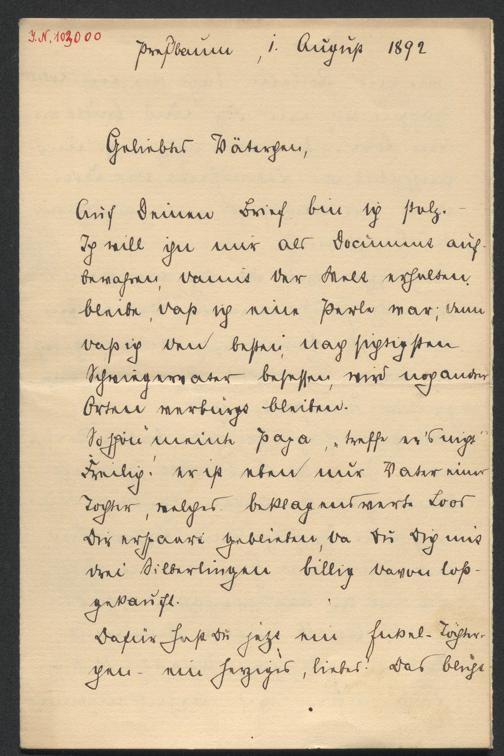 J.N. 103000
Preßbaum, 1. August 1892
Geliebtes Väterchen,
Auf Deinen Brief bin ich stolz. –
Ich will ihn mir als Document auf-
bewahren, damit der Welt erhalten
bleibe, daß ich eine Perle war; denn
daß ich den besten, nachsichtigsten
Schwiegervater besessen, wird noch andrer
Orten verbürgt bleiben.
So schön meinte Papa, „treffe er's nicht"
Freilich! er ist eben nur Vater einer
Tochter, welches beklagenswerte Loos
Dir erspart geblieben, da Du Dich mit
drei Silberlingen billig davon los-
gekauft.
Dafür hast Du jetzt ein Enkel-Töchter-
chen – ein herziges, liebes! Das blüht